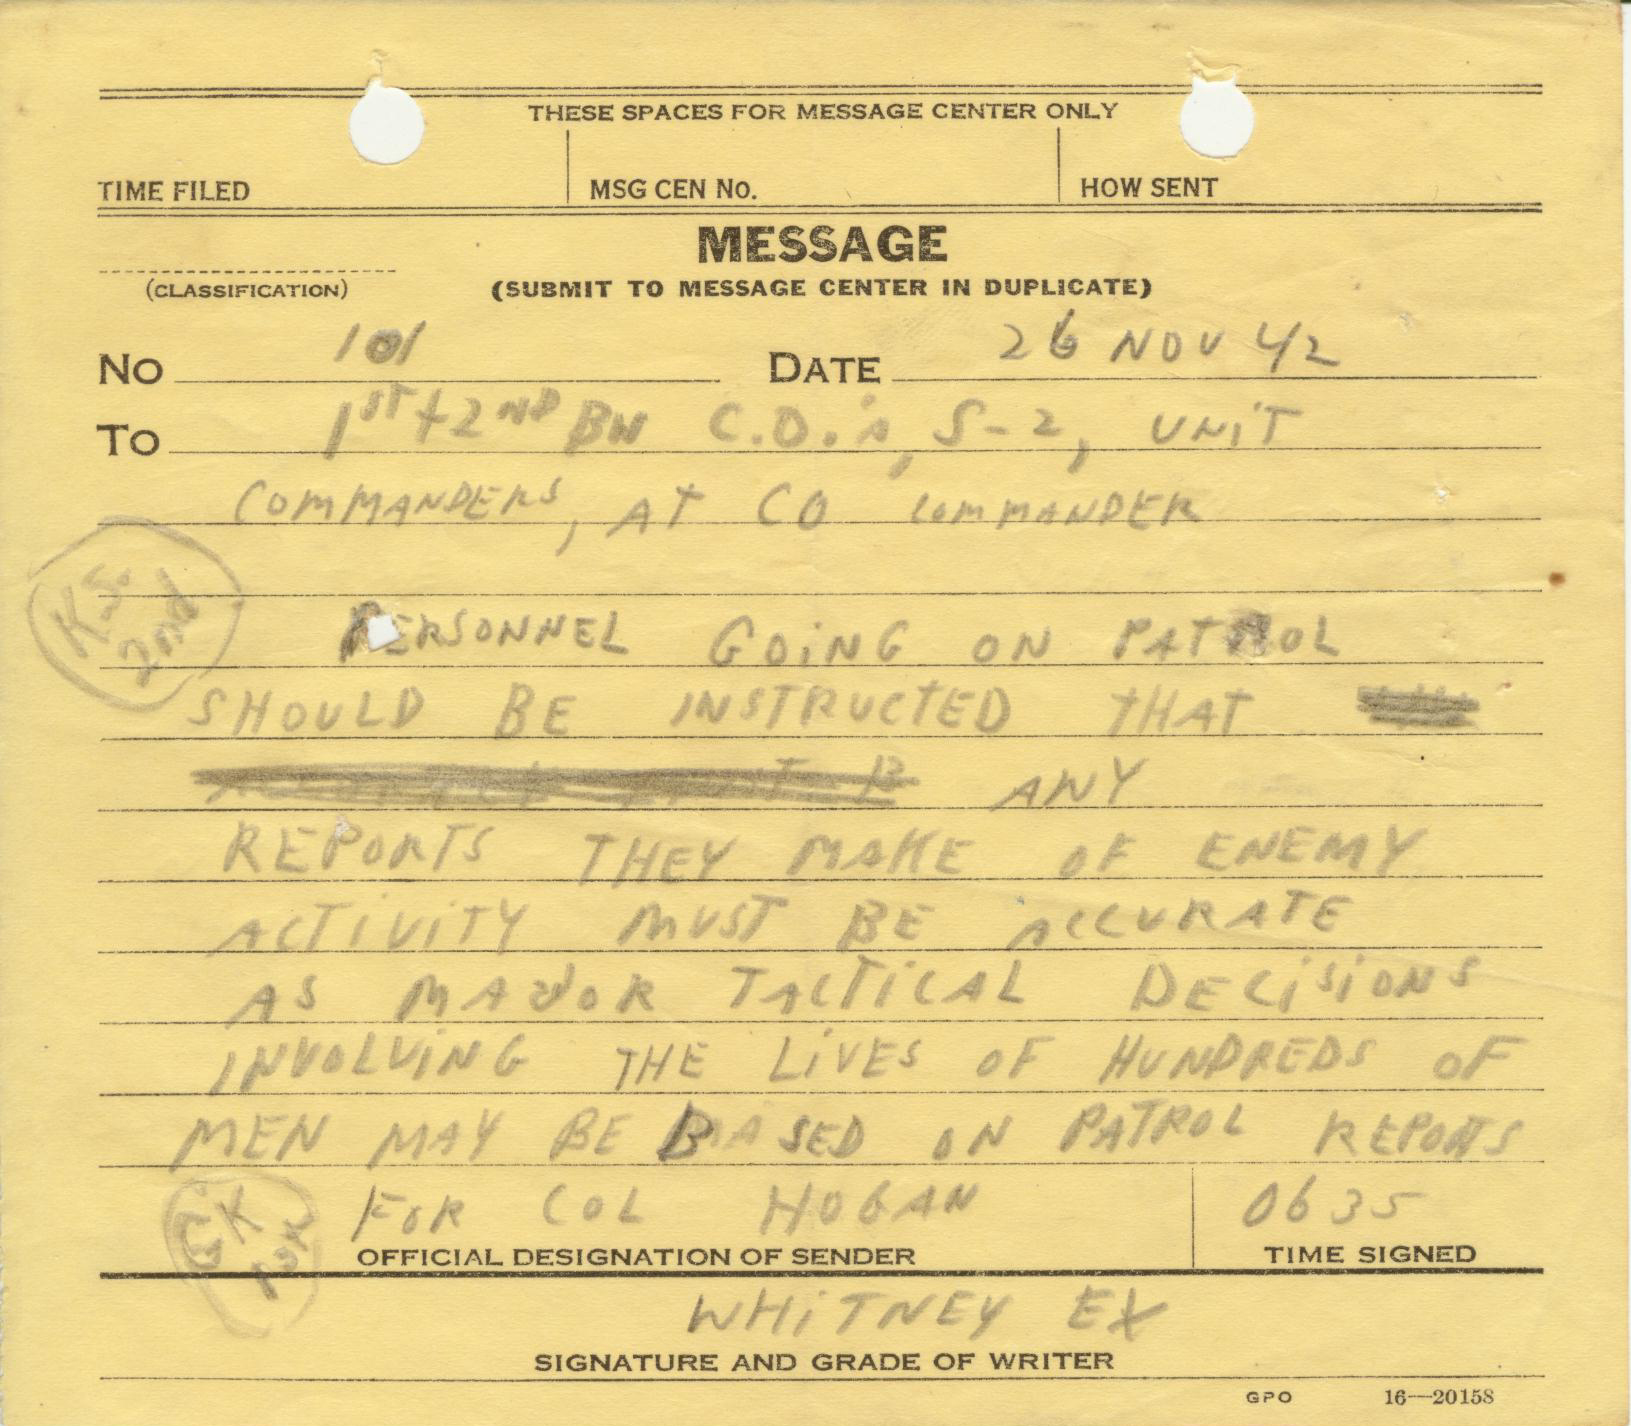 THESE SPACES FOR MESSAGE CENTER ONLY
TIME FILED MSG CEN No. HOW SENT
MESSAGE
(CLASSIFICATION) (SUBMIT TO MESSAGE CENTER IN DUPLICATE)
No 101 DATE 26 NOV 42
To 1ST + 2ND BN C.O.'s, S-2, UNIT
COMMANDERS, AT CO COMMANDER
K.S. 2nd
PERSONNEL GOING ON PATROL
SHOULD BE INSTRUCTED THAT
ANY
REPORTS THEY MAKE OF ENEMY
ACTIVITY MUST BE ACCURATE
AS MAJOR TACTICAL DECISIONS
INVOLVING THE LIVES OF HUNDREDS OF
MEN MAY BE BASED ON PATROL REPORTS
FOR COL HOGAN 0635
OFFICIAL DESIGNATION OF SENDER TIME SIGNED
WHITNEY EX
SIGNATURE AND GRADE OF WRITER
GPO 16—20158